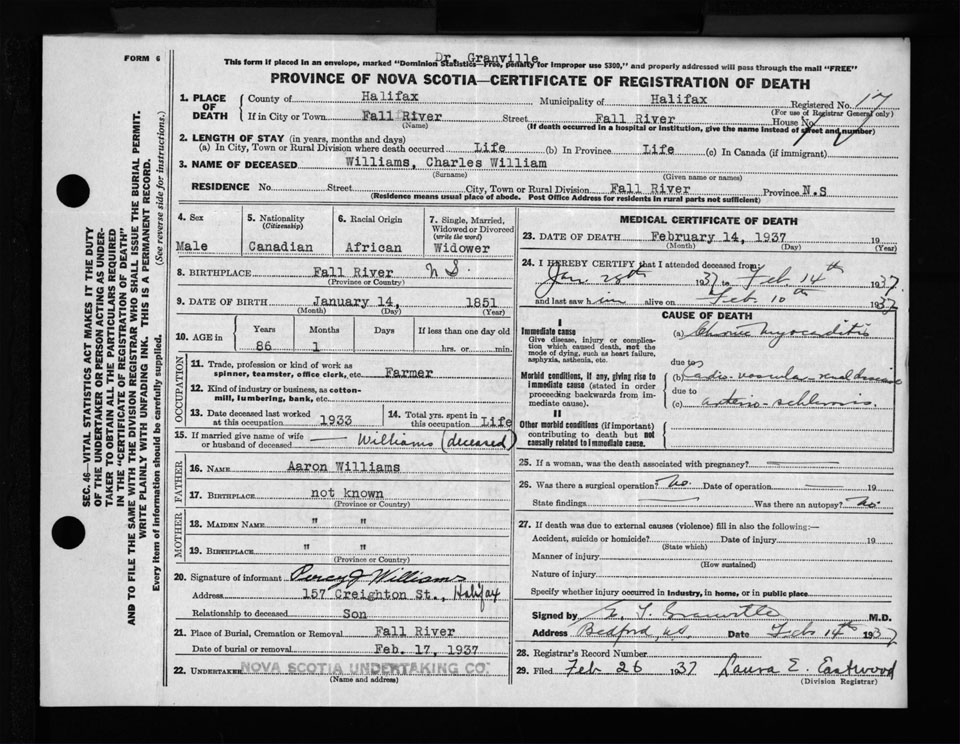 FORM 6
Dr. Granville
This form if placed in an envelope, marked "Dominion Statistics—Free, penalty for improper use $300," and properly addressed will pass through the mail "FREE"
PROVINCE OF NOVA SCOTIA—CERTIFICATE OF REGISTRATION OF DEATH
1. PLACE OF DEATH
County of Halifax Municipality of Halifax Registered No. 17
(For use of Registrar General only)
If in City or Town Fall River Street Fall River House No.
(Name) (If death occurred in a hospital or institution, give the name instead of street and number)
2. LENGTH OF STAY (in years, months and days)
(a) In City, Town or Rural Division where death occurred Life (b) In Province Life (c) In Canada (if immigrant)
3. NAME OF DECEASED Williams, Charles William
(Surname) (Given name or names)
RESIDENCE No. Street City, Town or Rural Division Fall River Province N.S
(Residence means usual place of abode. Post Office Address for residents in rural parts not sufficient)
4. Sex 5. Nationality (Citizenship) 6. Racial Origin 7. Single, Married, Widowed or Divorced (write the word)
Male Canadian African Widower
8. BIRTHPLACE Fall River N S.
(Province or Country)
9. DATE OF BIRTH January 14, 1851
(Month) (Day) (Year)
10. AGE IN Years Months Days If less than one day old
86 1 hrs. or min.
OCCUPATION
11. Trade, profession or kind of work as spinner, teamster, office clerk, etc. Farmer
12. Kind of industry or business, as cotton-mill, lumbering, bank, etc.
13. Date deceased last worked at this occupation 1933
14. Total yrs. spent in this occupation Life
15. If married give name of wife or husband of deceased — Williams (deceased)
FATHER
16. NAME Aaron Williams
17. BIRTHPLACE not known
(Province or Country)
MOTHER
18. MAIDEN NAME " "
19. BIRTHPLACE " "
(Province or Country)
20. Signature of informant Percy J Williams
Address 157 Creighton St., Halifax
Relationship to deceased Son
21. Place of Burial, Cremation or Removal Fall River
Date of burial or removal Feb. 17, 1937
22. UNDERTAKER NOVA SCOTIA UNDERTAKING CO.
(Name and address)
MEDICAL CERTIFICATE OF DEATH
23. DATE OF DEATH February 14, 1937 19
(Month) (Day) (Year)
24. I HEREBY CERTIFY that I attended deceased from:
Jan 28th 1937 to Feb 14th 1937.
and last saw him alive on Feb 10th 1937
CAUSE OF DEATH
I
Immediate cause
Give disease, injury or complication which caused death, not the mode of dying, such as heart failure, asphyxia, asthenia, etc.
(a) Chronic Myocarditis
due to
Morbid conditions, if any, giving rise to immediate cause (stated in order proceeding backwards from immediate cause).
(b) cardio-vascular-renal disease
due to
(c) arterio-schlerosis.
II
Other morbid conditions (if important) contributing to death but not causally related to immediate cause.
25. If a woman, was the death associated with pregnancy?
26. Was there a surgical operation? No. Date of operation 19
State findings Was there an autopsy? No.
27. If death was due to external causes (violence) fill in also the following:—
Accident, suicide or homicide? Date of injury 19
(State which)
Manner of injury
(How sustained)
Nature of injury
Specify whether injury occurred in industry, in home, or in public place
Signed by G. T. Granville M.D.
Address Bedford NS. Date Feb 14th 1937
28. Registrar's Record Number
29. Filed Feb 26 1937 Laura E. Eastwood
(Division Registrar)
SEC. 46—VITAL STATISTICS ACT MAKES IT THE DUTY
OF THE UNDERTAKER OR PERSON ACTING AS UNDER-
TAKER TO OBTAIN ALL THE PARTICULARS REQUIRED
IN THE "CERTIFICATE OF REGISTRATION OF DEATH"
AND TO FILE THE SAME WITH THE DIVISION REGISTRAR WHO SHALL ISSUE THE BURIAL PERMIT.
WRITE PLAINLY WITH UNFADING INK. THIS IS A PERMANENT RECORD.
Every item of information should be carefully supplied. (See reverse side for instructions.)